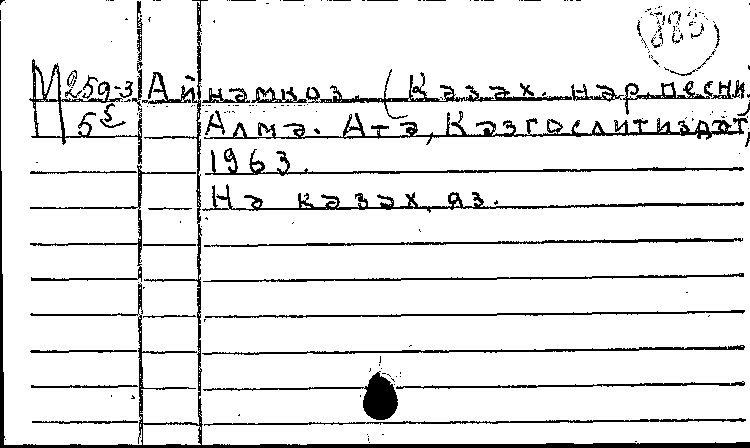 883
М259-3 Айнамкоз. (Казах. нар. песни
5⁵ Алма-Ата, Казгослитиздат,
1963.
На казах. яз.